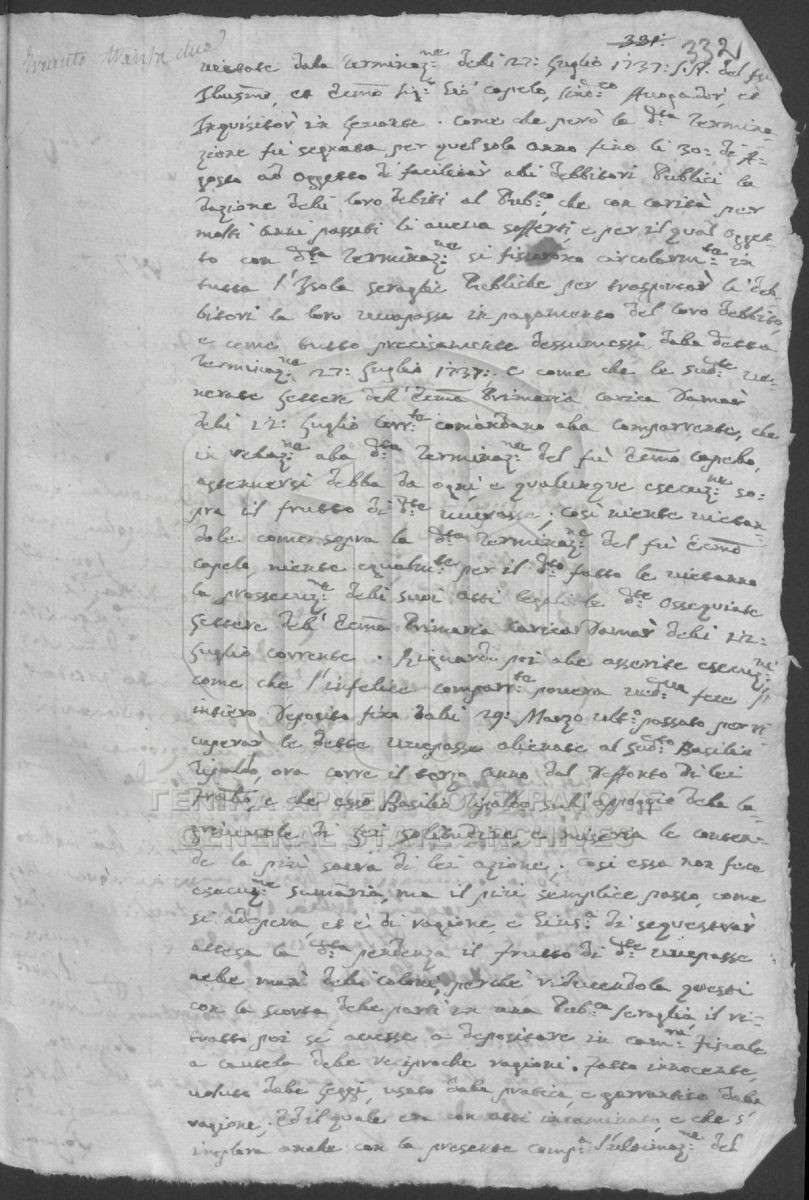 331. 332
trecento trenta due
vietate dalla Terminaz:ne delli 27: Luglio 1737: S.N. del fù
Illusmo, et Eccmo Sigr Zió Capelo, Sindco Avogador, et
Inquisitor in Levante. Come che però la dtta Termina-
zione fù segnata per quel solo anno fino li 30: di A-
gosto ad oggetto di facilitar alli debbitori Publici la
dazione delli loro debiti al Pub:co, che con carità per
molti anni passati li aveva sofferti, e per il qual ogget-
to con dtta Terminaz:ne si fissarono circolarmte in
tutta l'Isola Seraglie Publiche per trasportar li deb-
bitori la loro uvapassa in pagamento del loro debbito,
e come tutto precisamente dessumessi dalla detta
Terminaz:ne 27: Luglio 1737: e come che le sudtte ve-
nerate Lettere dell'Eccma Primaria Carica
delli 12: Luglio corrte comandano alla comparrente, che
in relaz:ne alla dtta Terminaz:ne del fù Eccmo Capelo,
astenersi debba da ogni, e qualunque esecuz:ne so-
pra il frutto di dtte uvepasse; così niente vietan-
dole come sopra la dtta Terminaz:ne del fù Eccmo
Capelo, niente egualmte per il dtto fatto le vietanno
la prossecuz:ne delli suoi atti legali le dtte ossequiate
Lettere dell'Eccma Primaria Carica delli 12:
Luglio corrente. Riguardo poi alle asserite esecuz:ni
come che l'infelice comparrte povera vedova fece l'
intiero Deposito fin dalli 29: Marzo ultº passato per ri-
cuperar le dette uvepasse alienate al sudtto Basilio
Rigaldo, ora corre il terzo anno dal deffonto di lei
Fratello, e che esso Basilio Rigaldo sull'appoggio della la-
grimevole di lei solitudine, e miseria le conten-
de la più sacra di lei azione; così essa non fece
esecuz:ne sumaria, ma il più semplice passo, come
si adopera, et è di ragione, e Giusa di sequestrar
attesa la dtta pendenza il frutto di dtte uvepasse
nelle mani delli coloni, perchè riducendola questi
con la scorta delle parti in una Pub:ca Seraglia il ri-
tratto poi si avesse a depositare in Camra Fiscale
a cautela delle reciproche ragioni. Fatto innocente,
voluto dalle Leggi, usato dalla pratica, e garrantito dalla
ragione; Ed il quale era con atti incaminato, e che s'
implora anche con la presente comp:a l'ultimaz:ne del
ΓΕΝΙΚΑ ΑΡΧΕΙΑ ΤΟΥ ΚΡΑΤΟΥΣ
GENERAL STATE ARCHIVES